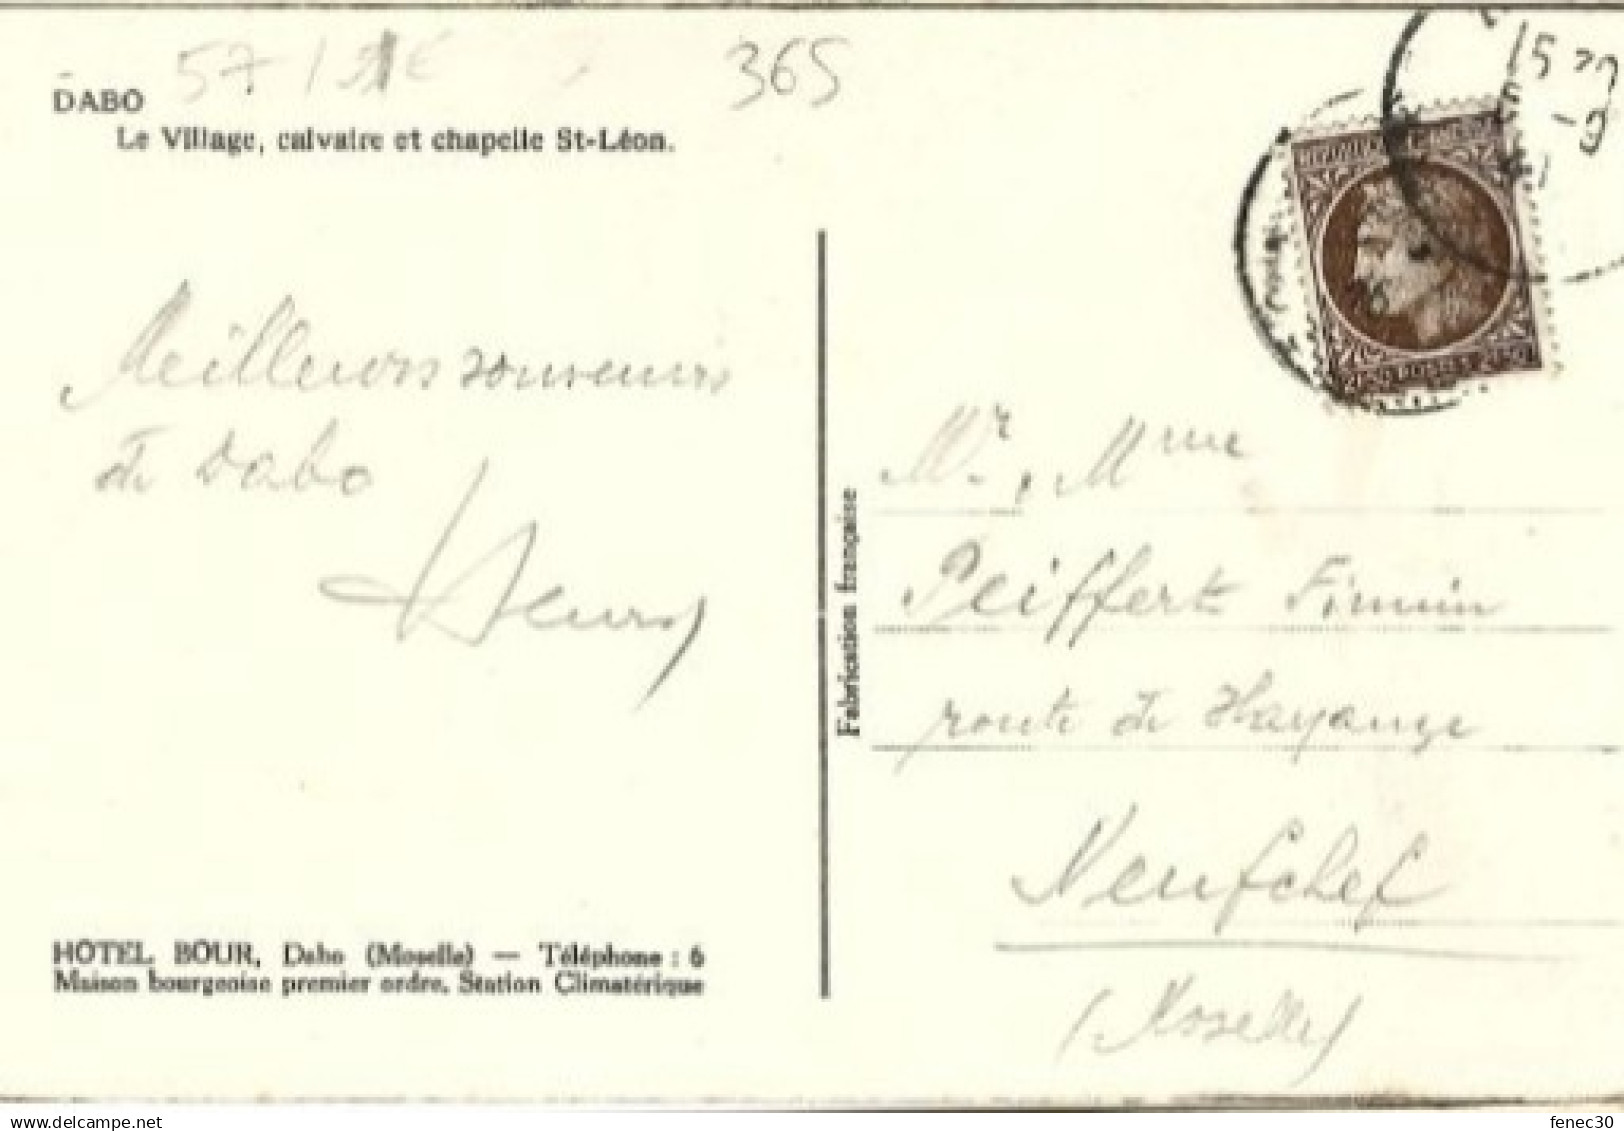 57 / 1€
365
DABO
Le Village, calvaire et chapelle St-Léon.
15 30
2F50 POSTES 2F50
Meilleurs souvenirs
de Dabo
Henry
Fabrication française
Mr, Mme
Peiffert Firmin
route de Hayange
Neufchef
(Moselle)
HÔTEL BOUR, Dabo (Moselle) — Téléphone : 6
Maison bourgeoise premier ordre. Station Climatérique
delcampe.net
fenec30